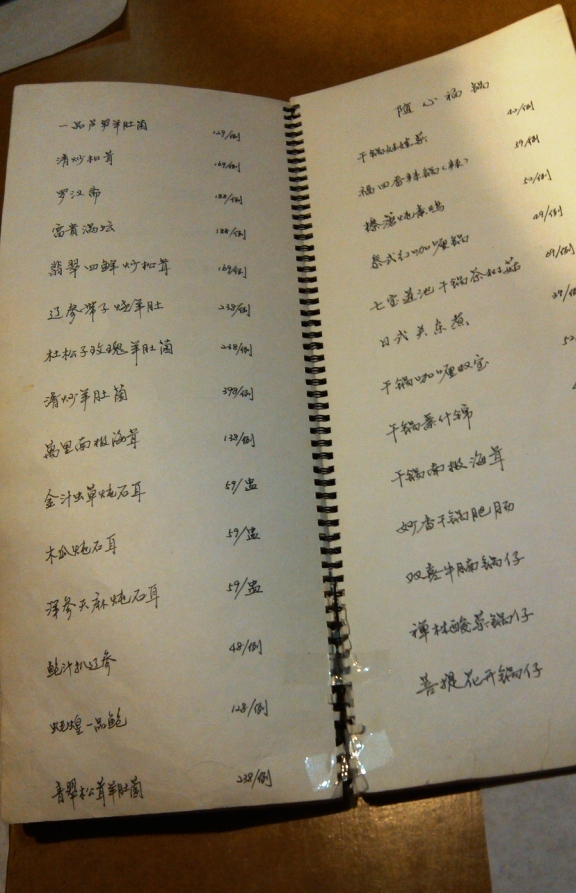 一品芦笋羊肚菌 129/例
清炒松茸 169/例
罗汉斋 188/例
富贵满坛 188/例
翡翠四鲜炒松茸 169/例
辽参蹄子烧羊肚 238/例
杜松子玫瑰羊肚菌 238/例
清炒羊肚菌 398/例
万里南极海茸 138/例
金汁虫草炖石耳 59/盅
木瓜炖石耳 59/盅
洋参天麻炖石耳 59/盅
鲍汁扒辽参 48/例
辉煌一品鲍 128/例
青翠松茸羊肚菌 238/例
随心福锅
干锅娃娃菜 42/例
福田香辣锅(辣) 59/例
榛蘑炖素鸡 52/例
泰式红咖喱锅 49/例
七宝莲池干锅茶树菇 69/例
日式关东煮
干锅咖喱双宝
干锅素什锦
干锅南极海茸
妙香干锅肥肠
双喜牛腩锅仔
禅林酸菜锅仔
菩提花开锅仔